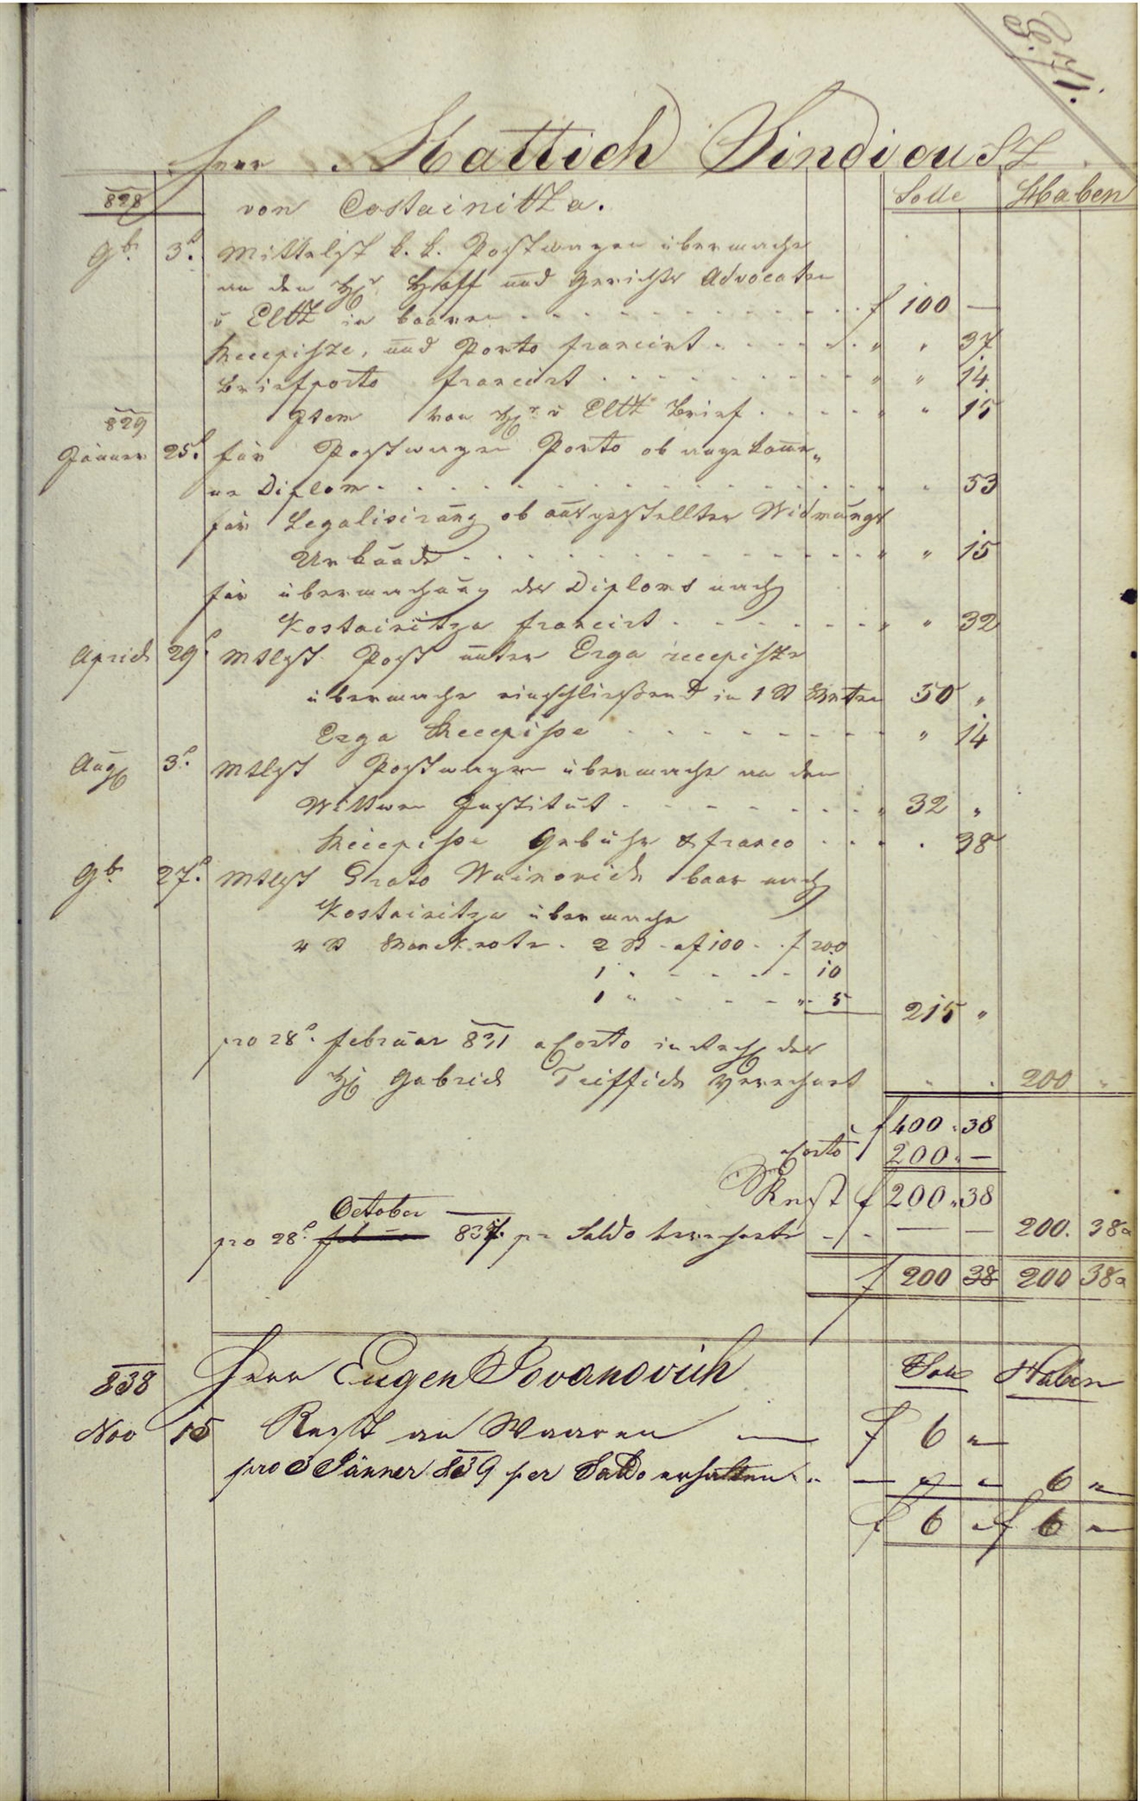 Herr Mattich Sindicus
828 von Costainitza. Solle Haben
9br 3t. Mittelst k. k. Postwagen übermache
an den Hr Hoff und Gerichts Advocaten
v Eltz in baaren f 100 —
Recepisse, und Porto francirt " " 37
Briefporto francirt " " 14
Item von Hr v Eltz Brief " " 15
829
Jänner 25t. für Postwagen Porto ob angekom„
ne Diplom " 53
für Legalisirung ob ausgestellter Widmungs
Urkunde " " 15
für übermachung des Diploms nach
Kostainitza francirt " " 32
April 29t. Mtlst Post unter Erga recepisse
übermache einschließend in 1 St 50 "
Erga Recepisse " 14
Aug 3t. Mtlst Postwagen übermache an den
Wittwen Institut " 32 "
Recepisse Gebühr & franco . 38
9br 27t. Mtlst baar nach
Kostainitza übermache
4 St Banknote. 2 St a f 100 f 200
1 " 10
1 " " 5 215 "
pro 28t. Februar 831 aConto in Rechg des
H Gabriel verechnet 200 "
f 400 . 38
aConto 200 . —
Rest f 200 . 38
October
pro 28t. 837. pr Saldo — — 200. 38
f 200 38 200 38
838 Herr Eugen Jovanovich Solle Haben
Nov 15 Rest an Waaren — f 6 "
pro 3 Jänner 839 per Saldo erhalten — " " 6 "
f 6 " f 6 "